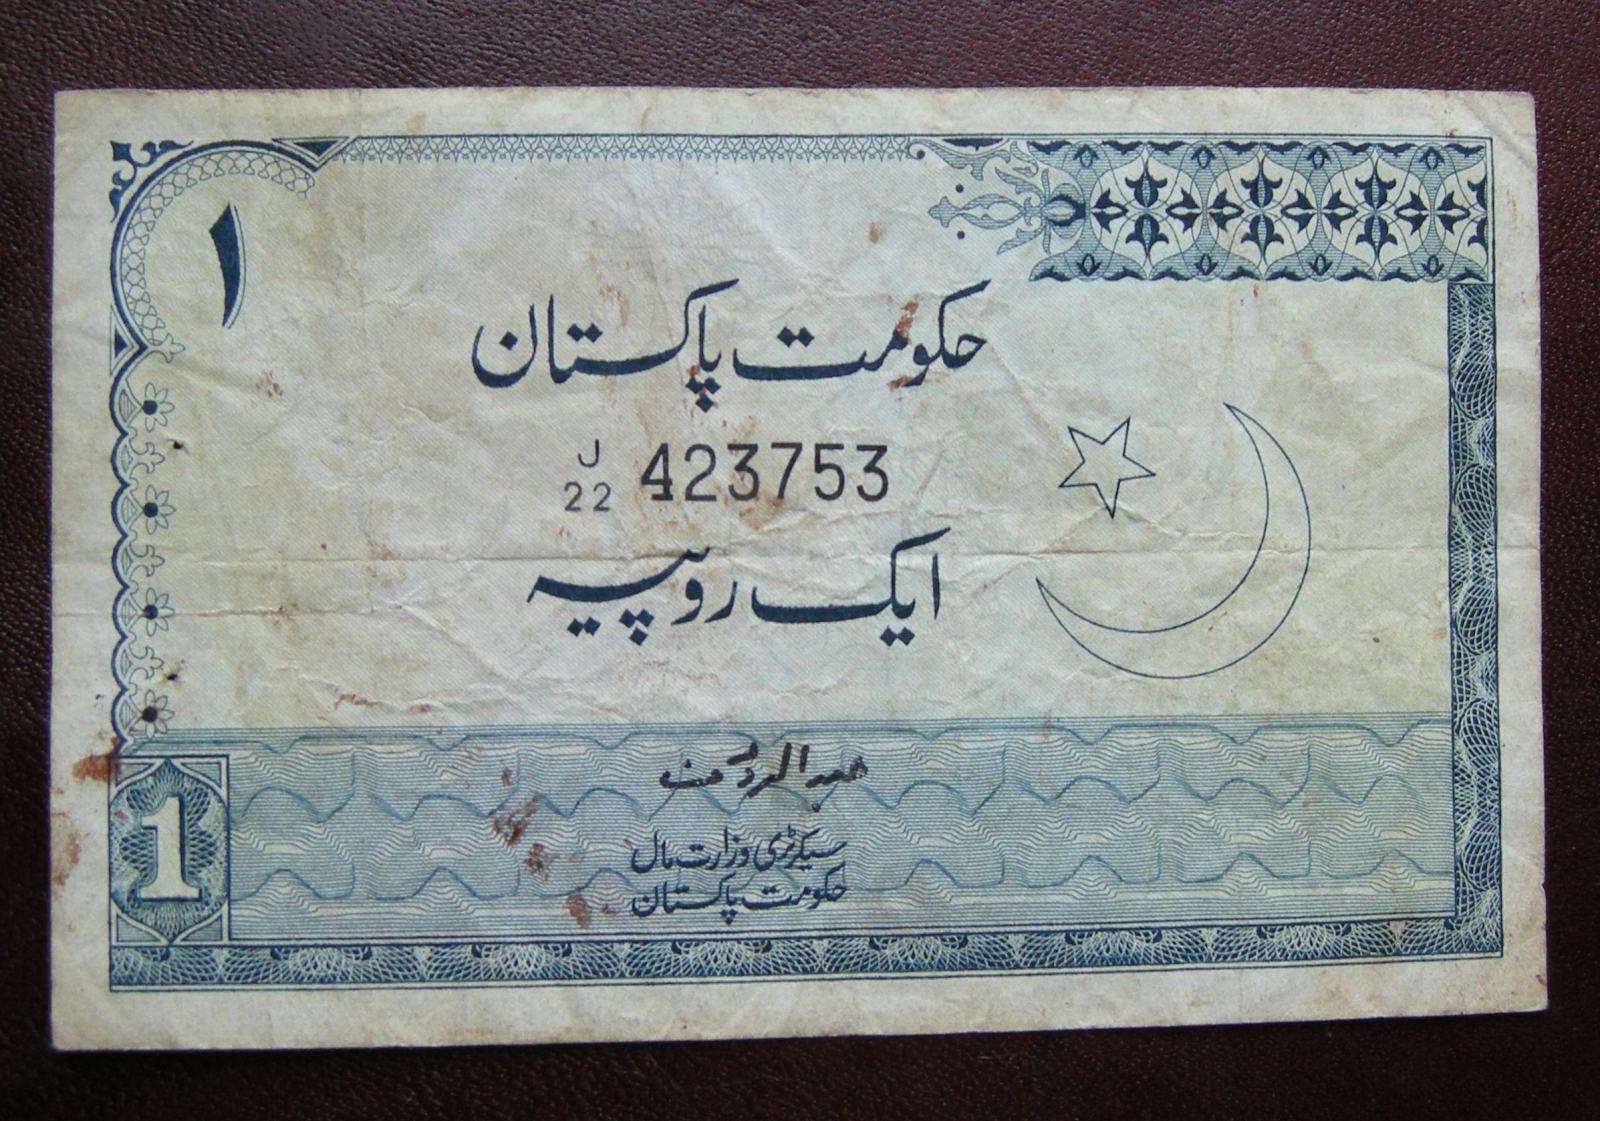 ۱
حکومت پاکستان
J
22 423753
ایک روپیہ
سیکرٹری وزارت مال
حکومت پاکستان
1